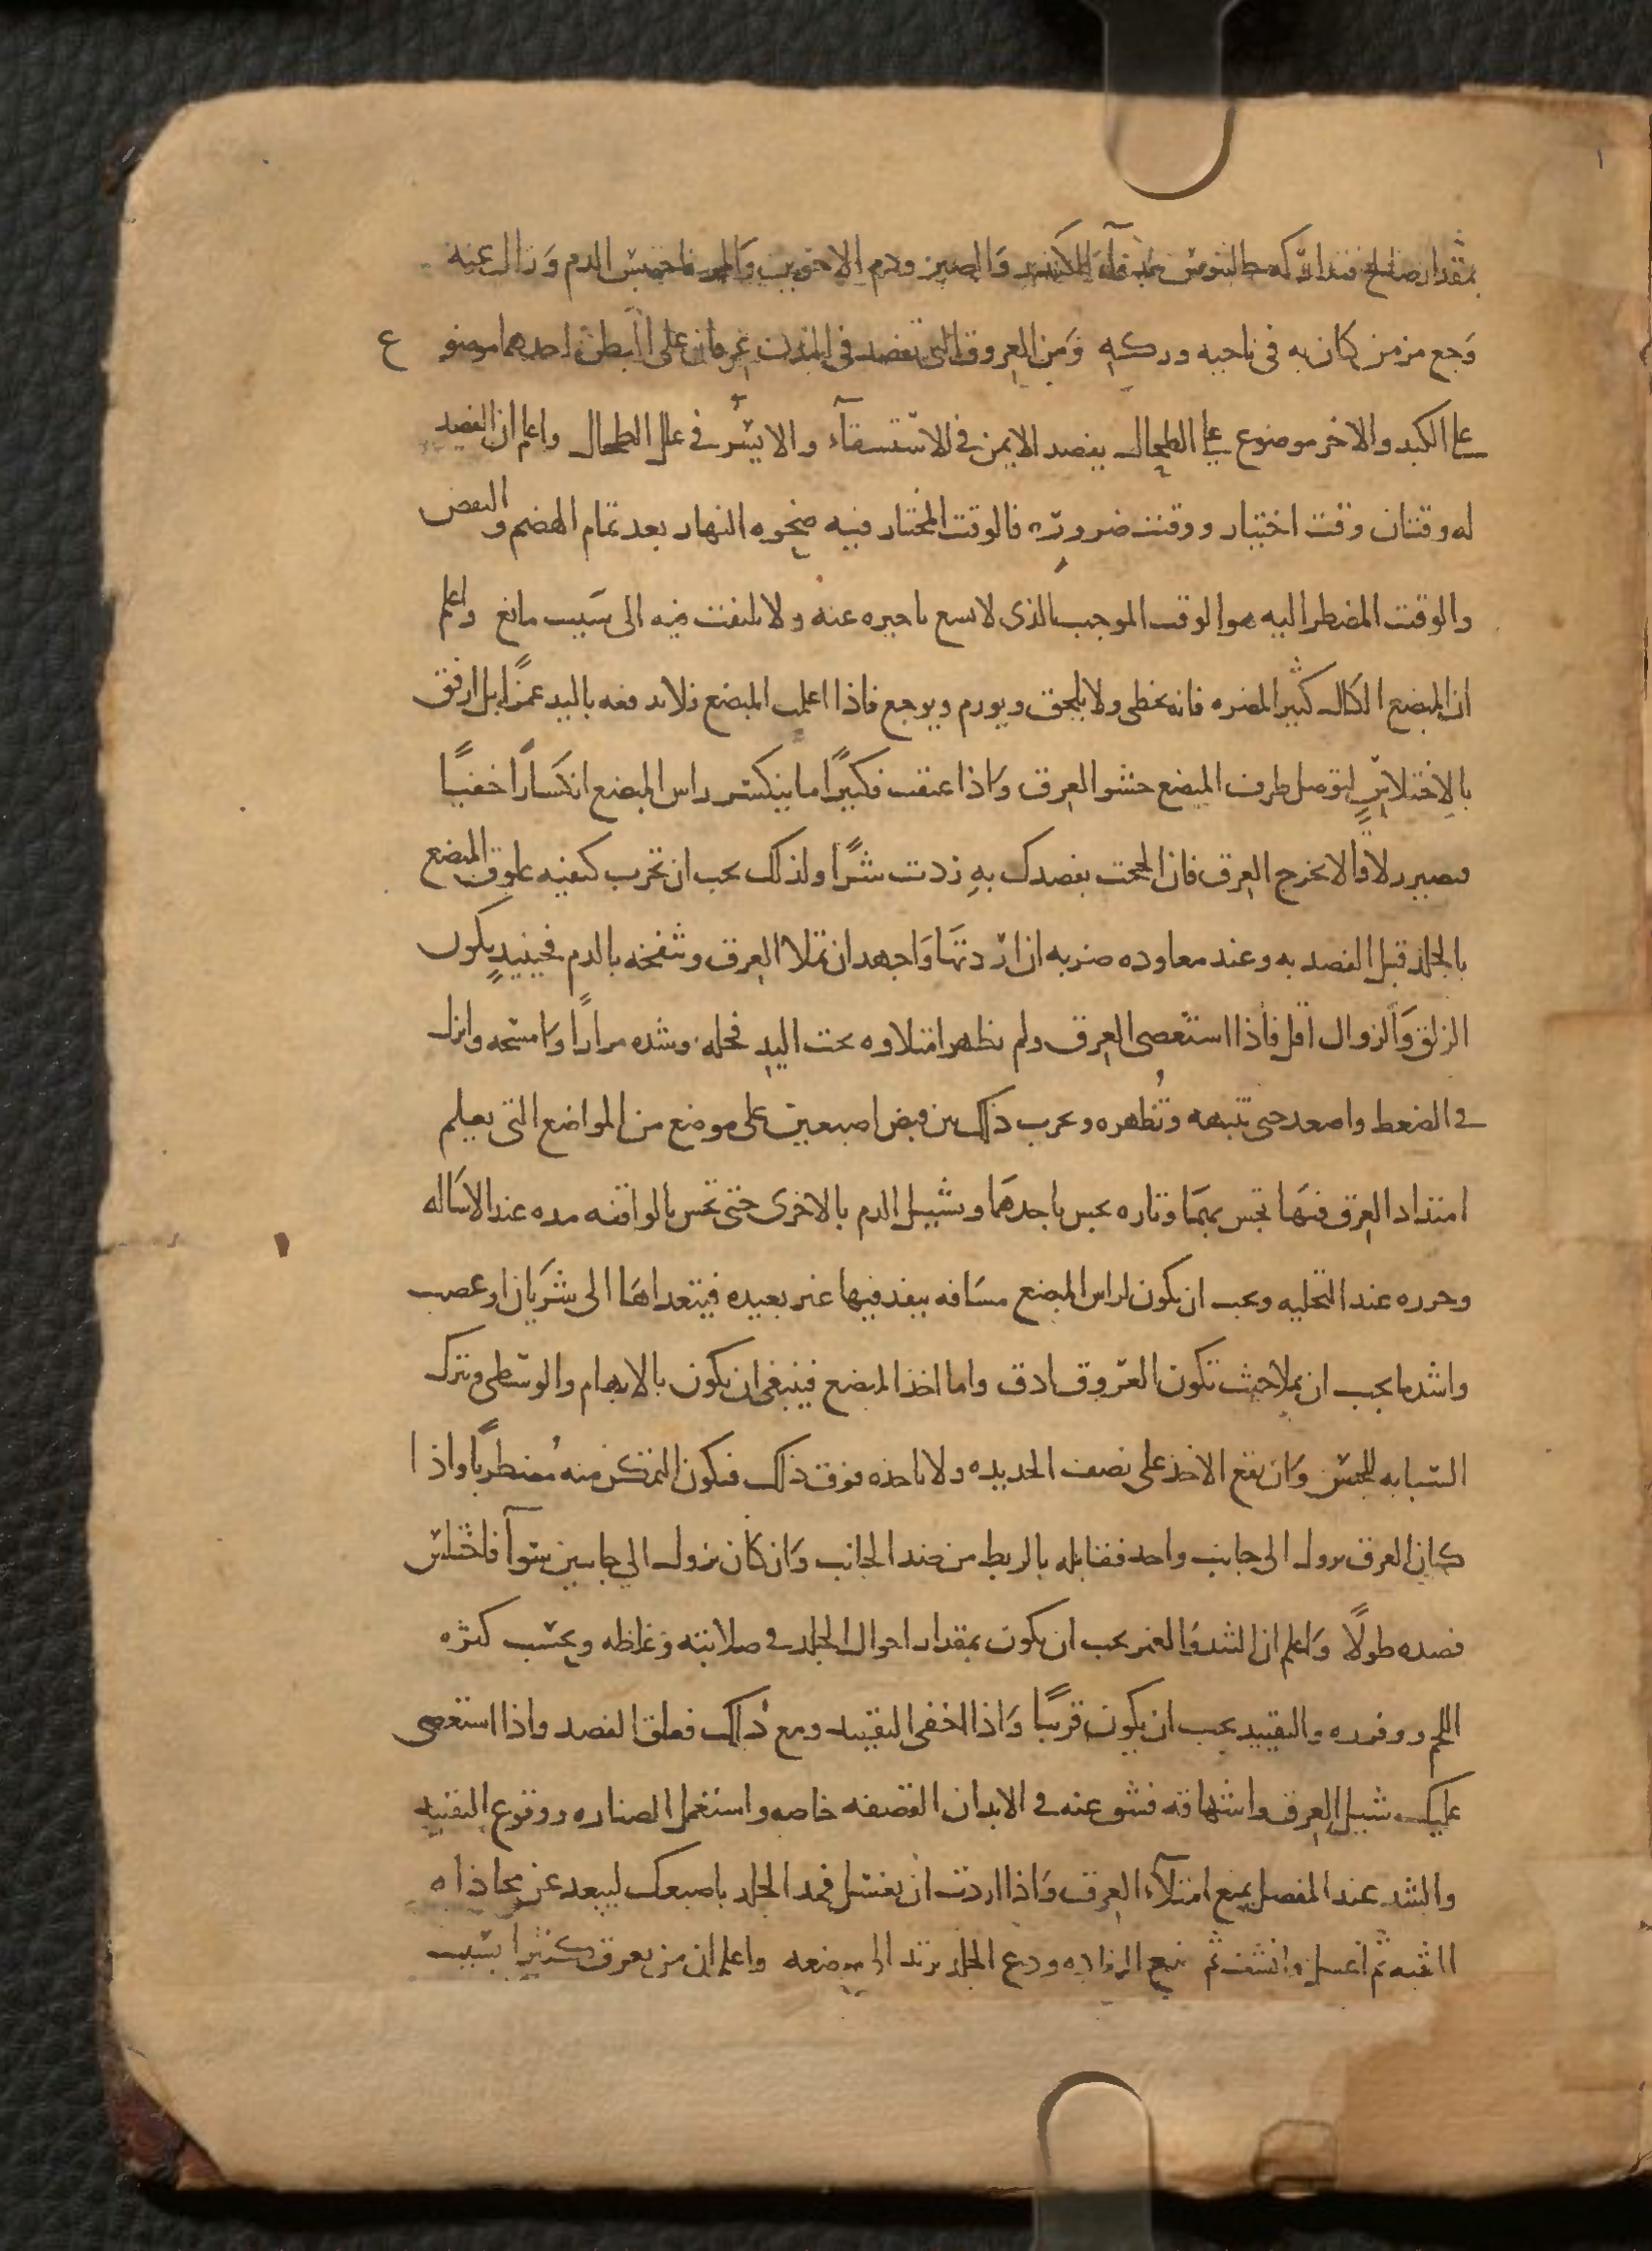 بمقدار صالح فتداركه جالينوس بدقاق الكندر والصبر ودم الاخوين والمر فاحتبس الدم وزال عنه
وَجع مزمن كان به في ناحيه وركه وَمن العروق التي تفصد في البدن عرقان على البطن احدهما موضوع
على الكبد والاخر موضوع على الطحال يفصد الايمن في الاستسقآء والايسر في علل الطحال واعلم ان الفصد
له وقتان وقت اختيار ووقت ضرورة فالوقت المختار فيه ضحوه النهار بعد تمام الهضم والنفض
والوقت المضطر اليه هو الوقت الموجب الذى لا يسع تاخيره عنه ولا يلتفت فيه الى سَبب مانع واعلم
ان المبضع الكال كثير المضره فانه يخطى ولا يلحق ويورم ويوجع فاذا اعملت المبضع فلا تدفعه باليد غمزًا بل ارفق
بالاِختلاسِ لتوصل طرف المبضع حشو العرق وَاذا عنفت فكثيرًا ما ينكسر راس المبضع انكسَارًا خفيًا
فيصير زلاقًا لا يخرج العرق فان الححت بفصدك بهِ زدت شرًا ولذلك يجب ان تجرب كيفيه علوق المبضع
بالجلد قبل الفصد به وعند معاوده ضربه ان ارَدتهَا وَاجهد ان تملا العرق وتنفخه بالدم فحينيذٍ يكون
الزلق وَالزوال اقل فاذا استعصى العرق ولم يظهر امتلاوه تحت اليد فحله وشده مرارًا وَامسَحه وانزل
في الضغط واصعد حتى تنبهه وتُظهره وتجرب ذلك بين قبض اصبعين على موضع من المواضع التى تعلم
امتداد العرق فتهَا تحبس بهمَا وتاره تحبس باحدهَما وتسَيل الدم بالاخرى حتى تحس بالواقفه مده عند الاسَاله
وحرره عند التخليه ويجب ان يكون لراس المبضع مسَافه ينفد فيها غير بعيده فيتعداهَا الى شريَان او عصب
واشد ما يجب ان يملا حيث تكون العروق ادق واما اخذ المبضع فينبغى ان يكون بالابهام والوسطى وتترك
السبابه للجس وَان يقع الاخذ على نصف الحديده ولا تاخذه فوق ذلك فيكون التمكن منه مُضطربًا واذا
كان العرق يزول الى جانب واحد فقابله بالربط من ضد الجانب وَان كان يزول الي جانبين سَوآ فاختلس
فصده طولًا وَاعلم ان الشد وَالغمز يجب ان يكون بمقدار احوال الجلد في صلابته وَغلظه وبحسَب كثره
اللحم ووفوره والتقييد يجب ان يكون قريبًا وَاذا اخفى التقييد ومع ذلك فعلق الفصد واذا استعصى
عليك سَبيل العرق واشهاقه فشق عنه في الابدان القضيفه خاصه واستعمل الصناره ووقوع التقييد
والشد عند المفصل يمنع امتلآء العرق وَاذا اردت ان تغسل فمد الجلد باصبعك ليبعد عن محاذاه
الثقبه ثم اغسل وانشف ثم ضع الرفاده ودع الجلد يرتد الى موضعه واعلم ان من يعرق كثيرًا بسبب